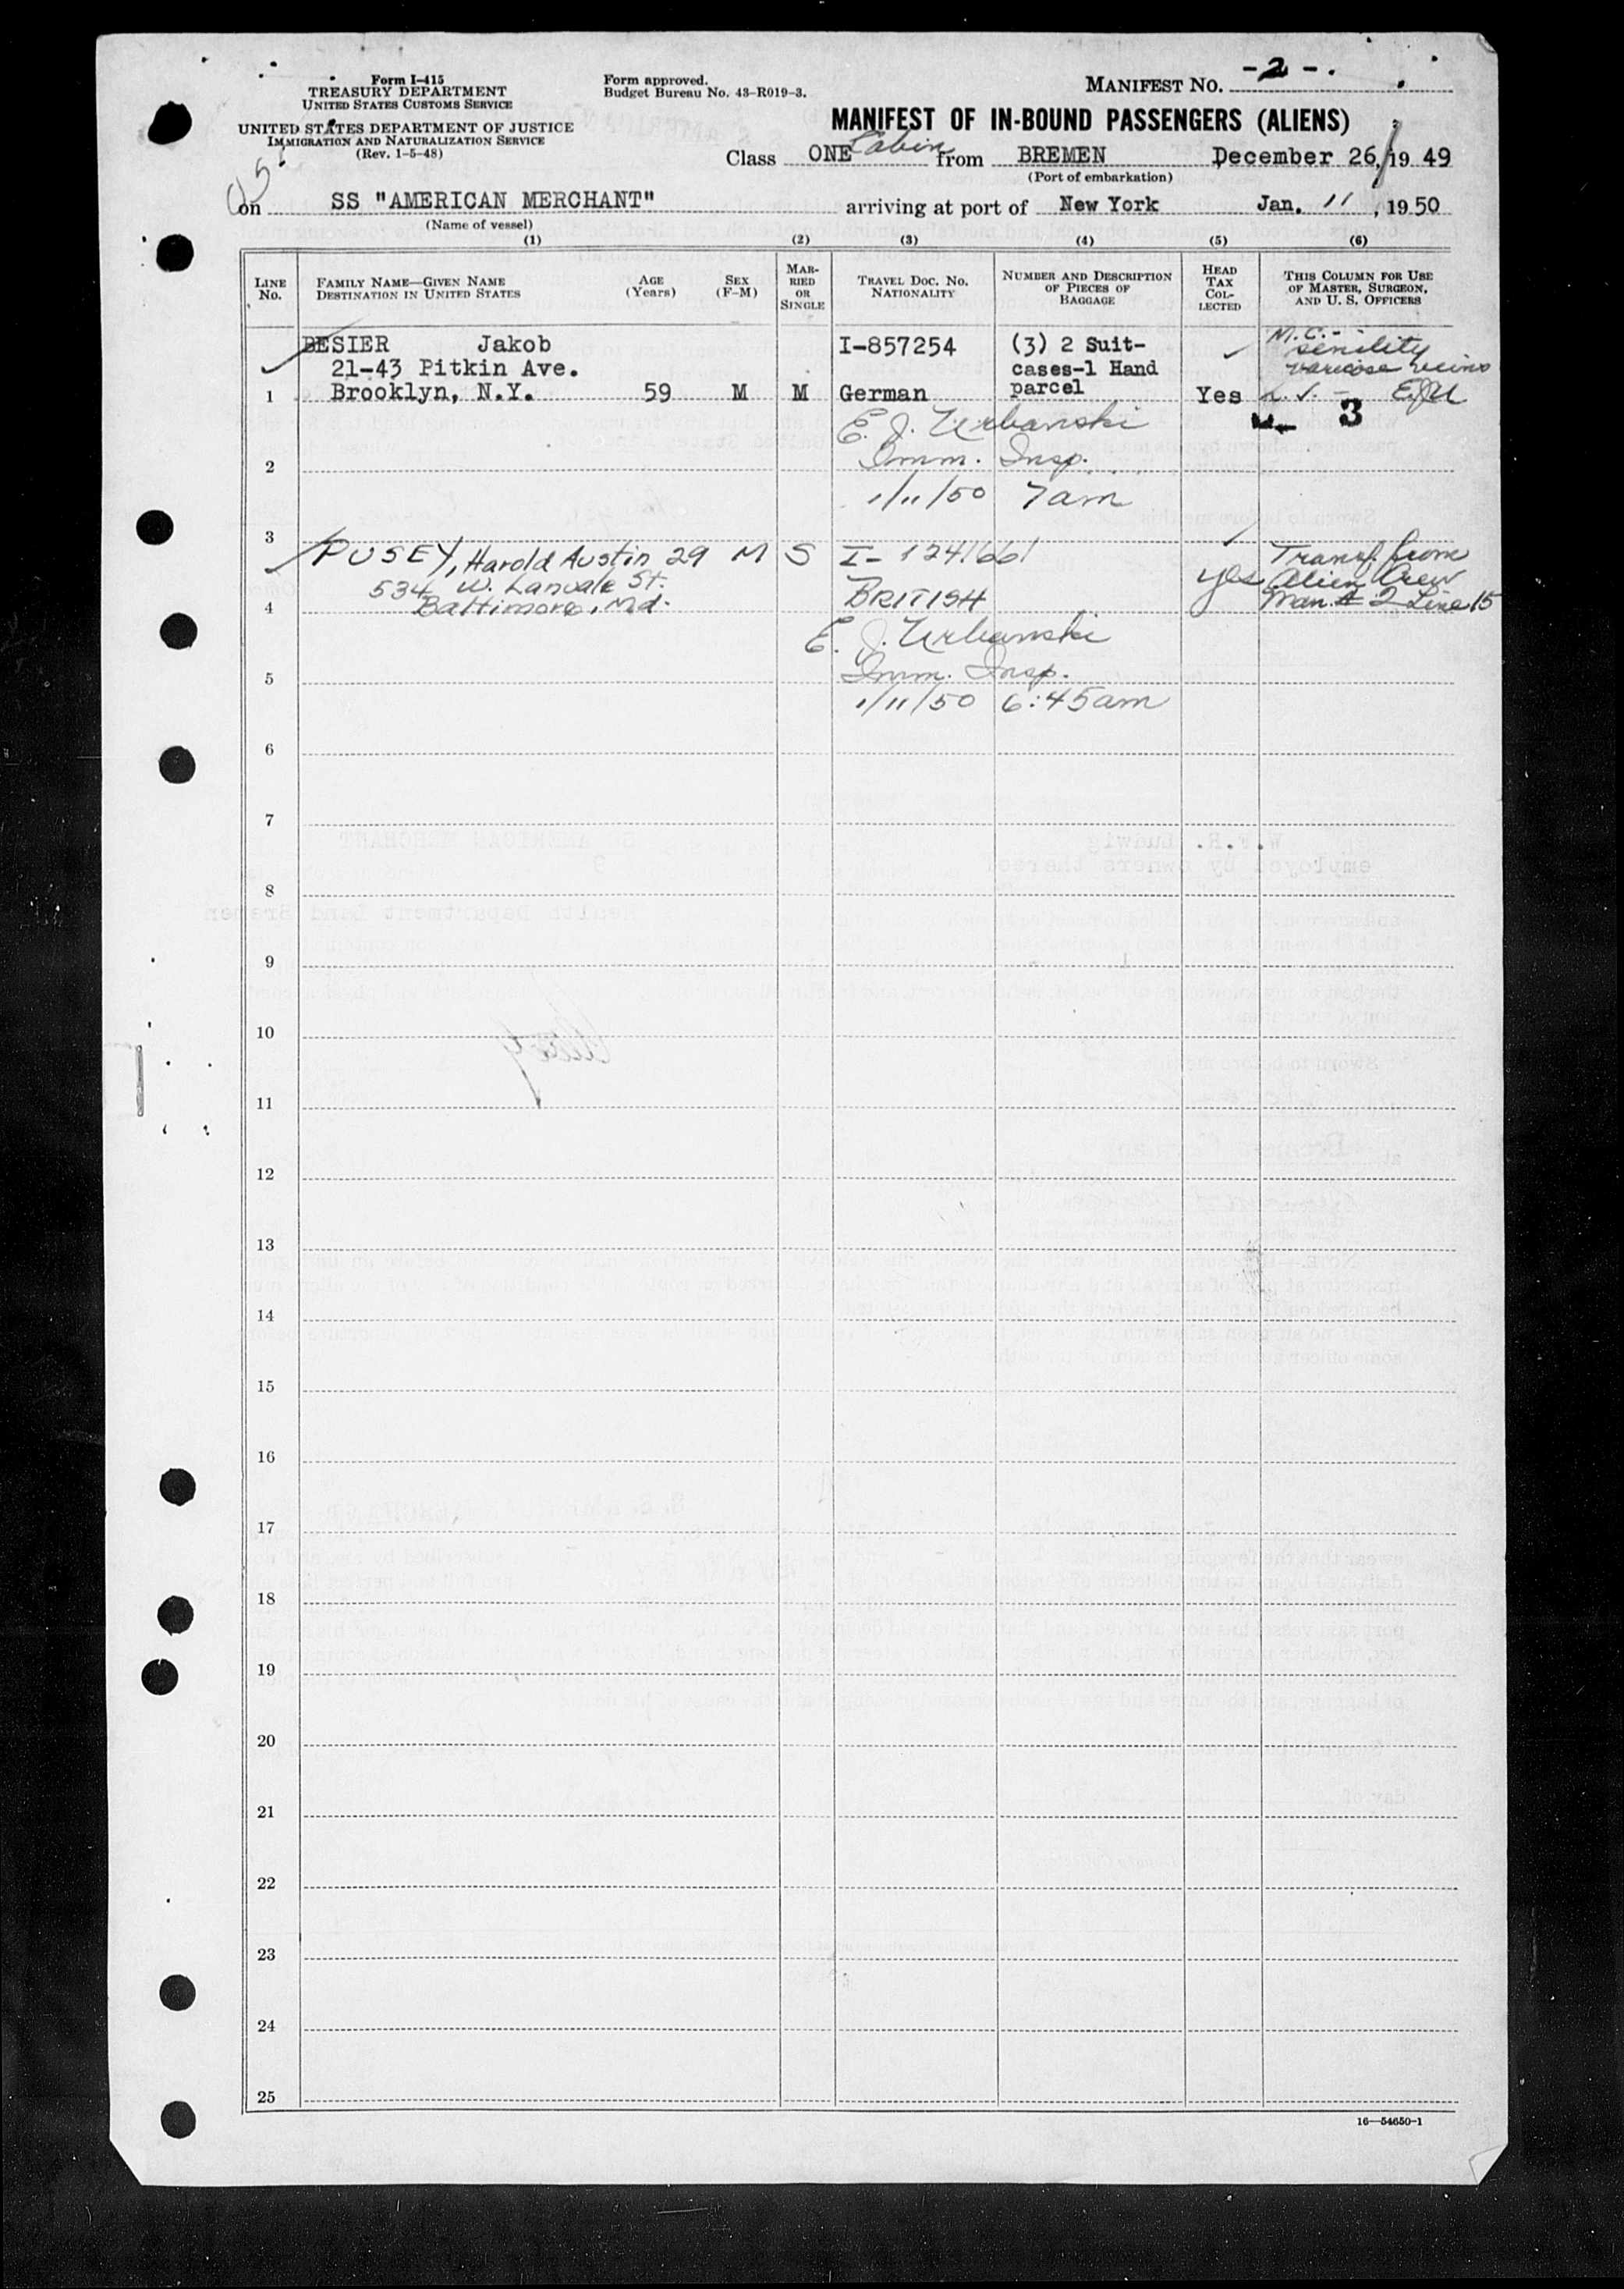 Form I-415
TREASURY DEPARTMENT
UNITED STATES CUSTOMS SERVICE
UNITED STATES DEPARTMENT OF JUSTICE
IMMIGRATION AND NATURALIZATION SERVICE
(Rev. 1-5-48)
Form approved.
Budget Bureau No. 43-R019-3.
MANIFEST NO. -2-
MANIFEST OF IN-BOUND PASSENGERS (ALIENS)
Class ONE Cabin from BREMEN December 26, 19 49
(Port of embarkation)
on SS "AMERICAN MERCHANT" arriving at port of New York Jan. 11, 19 50
(Name of vessel)
(1) (2) (3) (4) (5) (6)
LINE No.
FAMILY NAME—GIVEN NAME
DESTINATION IN UNITED STATES
AGE (Years)
SEX (F-M)
MARRIED OR SINGLE
TRAVEL DOC. NO.
NATIONALITY
NUMBER AND DESCRIPTION OF PIECES OF BAGGAGE
HEAD TAX COLLECTED
THIS COLUMN FOR USE OF MASTER, SURGEON, AND U. S. OFFICERS
BESIER Jakob I-857254 (3) 2 Suit- M.C.-
21-43 Pitkin Ave. cases-1 Hand senility
1 Brooklyn, N.Y. 59 M M German parcel Yes varicose veins
EJU
3
E. J. Urbanski
2 Imm. Insp.
1/11/50 7am
3
PUSEY, Harold Austin 29 M S I-1241661 Transf. from
534 W. Lanvale St. yes Alien Crew
4 Baltimore, Md. BRITISH Man. 2 Line 15
E. J. Urbanski
5 Imm. Insp.
1/11/50 6:45am
6
7
8
9
10
11
12
13
14
15
16
17
18
19
20
21
22
23
24
25
16—54650-1